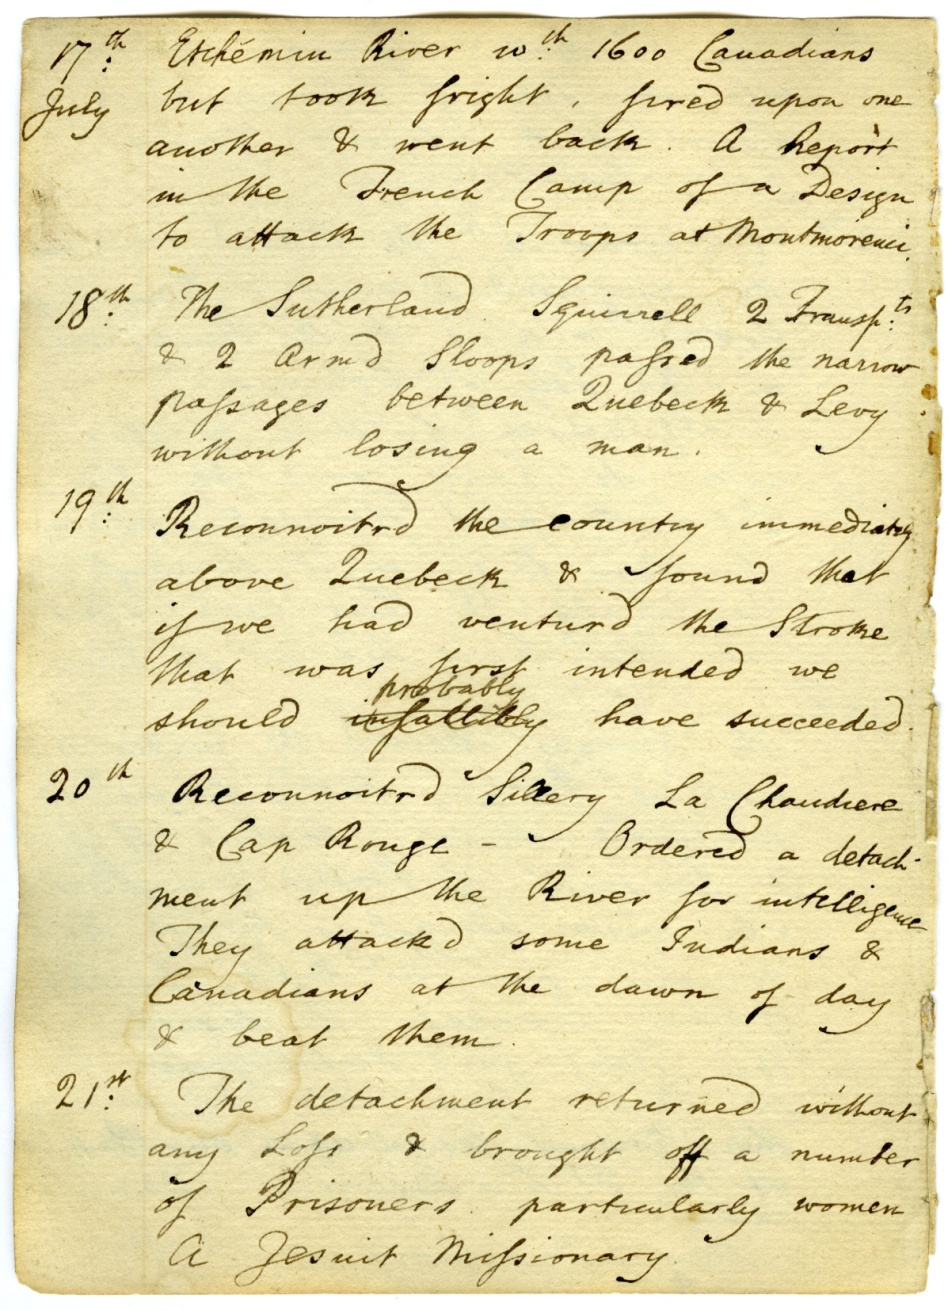 17th Etchémin River wth 1600 Canadians
July but took fright, fired upon one
another & went back. A Report
in the French Camp of a Design
to attack the Troops at Montmorenci.
18th The Sutherland Squirrell 2 Transpts
& 2 Armd Sloops passed the narrow
passages between Quebeck & Levy
without losing a man.
19th Reconnoitrd the country immediately
above Quebeck & found that
if we had venturd the Stroke
that was first intended we
probably
should infallibly have succeeded.
20th Reconnoitrd Sillery La Chaudiere
& Cap Rouge - Ordered a detach-
ment up the River for intelligence
They attackd some Indians &
Canadians at the dawn of day
& beat them.
21st The detachment returned without
any Loss & brought off a number
of Prisoners particularly women
A Jesuit Missionary.